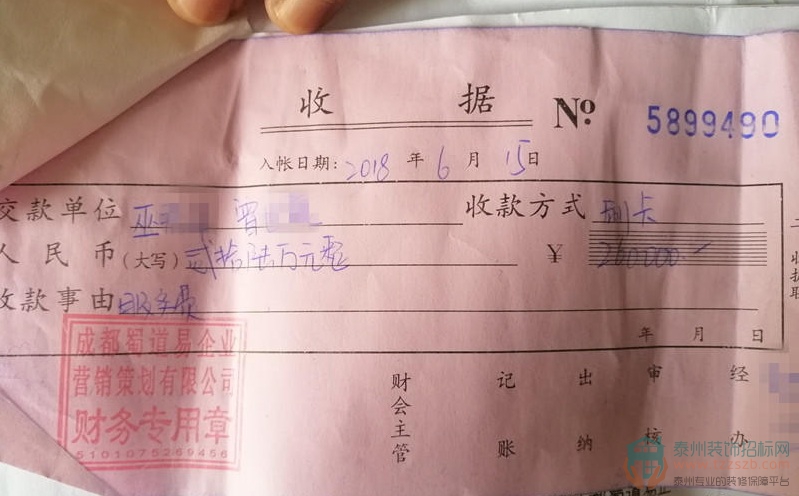 收 据 Nº 5899490
入帐日期: 2018 年 6 月 15 日
交款单位 巫 曾 收款方式 刷卡
人民币(大写) 贰拾陆万元整 ¥ 260000.-
收款事由 服务费
年 月 日
成都蜀道易企业
营销策划有限公司
财务专用章
5101075269456
财会主管 记账 出纳 审核 经办
泰州装饰招标网
泰州专业的装修保障平台